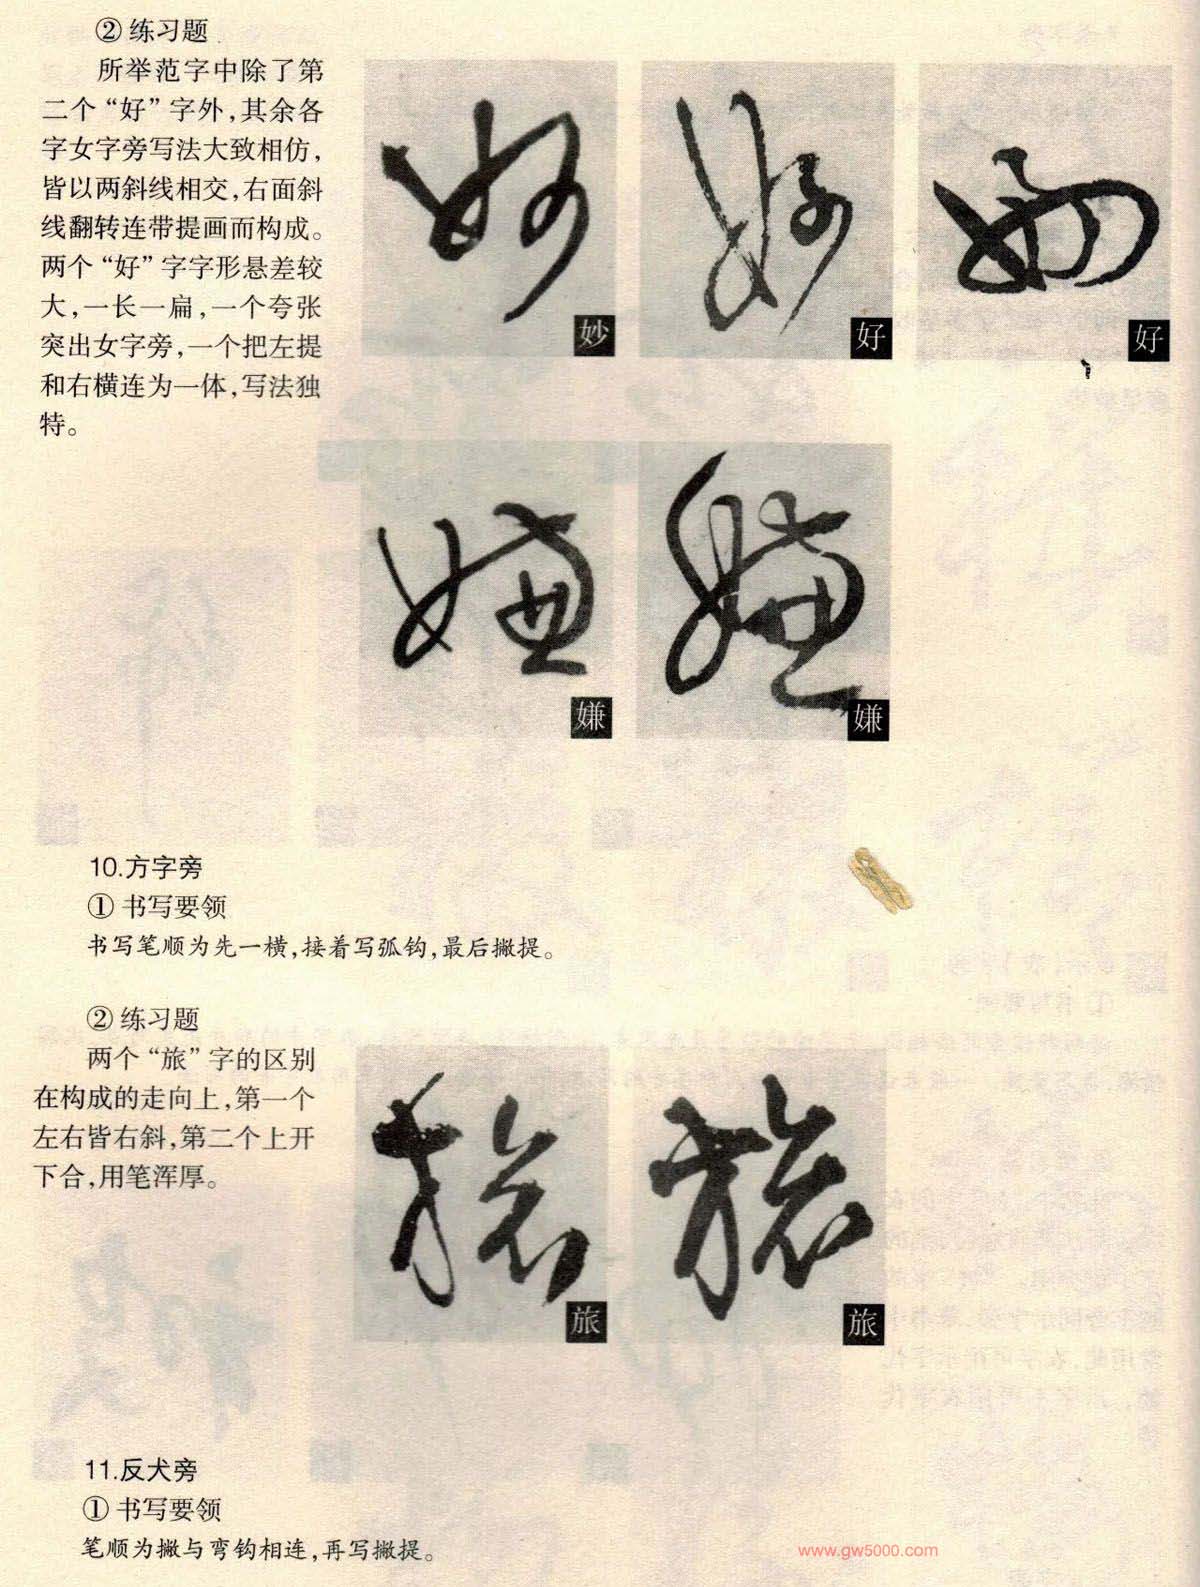 ② 练习题
所举范字中除了第
二个“好”字外，其余各
字女字旁写法大致相仿，
皆以两斜线相交，右面斜
线翻转连带提画而构成。
两个“好”字字形悬差较
大，一长一扁，一个夸张
突出女字旁，一个把左提
和右横连为一体，写法独
特。
妙
好
好
嫌
嫌
10.方字旁
① 书写要领
书写笔顺为先一横，接着写弧钩，最后撇提。
② 练习题
两个“旅”字的区别
在构成的走向上，第一个
左右皆右斜，第二个上开
下合，用笔浑厚。
旅
旅
11.反犬旁
① 书写要领
笔顺为撇与弯钩相连，再写撇提。
www.gw5000.com